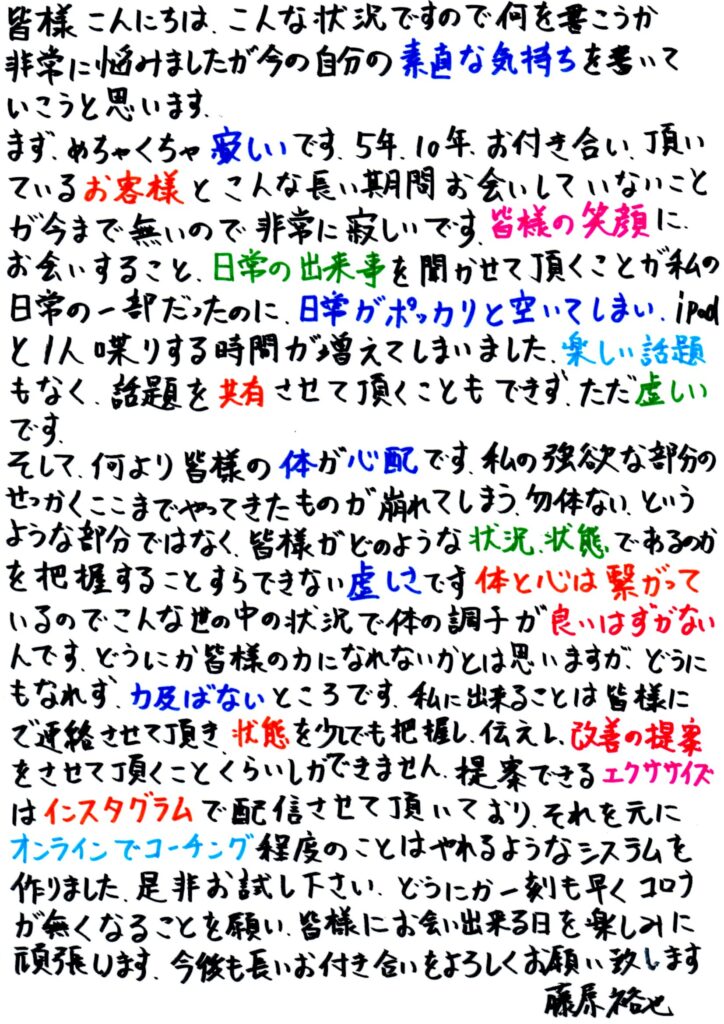 皆様こんにちは、こんな状況ですので何を書こうか
非常に悩みましたが今の自分の素直な気持ちを書いて
いこうと思います、
まず、めちゃくちゃ寂しいです、5年、10年、お付き合い、頂い
ているお客様とこんな長い期間お会いしていないこと
が今まで無いので非常に寂しいです、皆様の笑顔に、
お会いすること、日常の出来事を聞かせて頂くことが私の
日常の一部だったのに、日常がポッカリと空いてしまい、iPad
と1人喋りする時間が増えてしまいました、楽しい話題
もなく、話題を共有させて頂くこともできず、ただ虚しい
です、
そして、何より皆様の体が心配です、私の強欲な部分の
せっかくここまでやってきたものが崩れてしまう、勿体ない、という
ような部分ではなく、皆様がどのような状況、状態、であるのか
を把握することすらできない虚しさです体と心は繋がって
いるのでこんな世の中の状況で体の調子が良いはずがない
んです、どうにか皆様の力になれないかとは思いますが、どうに
もなれず、力及ばないところです、私に出来ることは皆様に
ご連絡させて頂き、状態を少しでも把握し、伝えし、改善の提案
をさせて頂くことくらいしかできません、提案できるエクササイズ
はインスタグラムで配信させて頂いており、それを元に
オンラインでコーチング程度のことはやれるようなシスラムを
作りました、是非お試し下さい、どうにか一刻も早くコロナ
が無くなることを願い、皆様にお会い出来る日を楽しみに
頑張ります、今後も長いお付き合いをよろしくお願い致します
藤原裕也